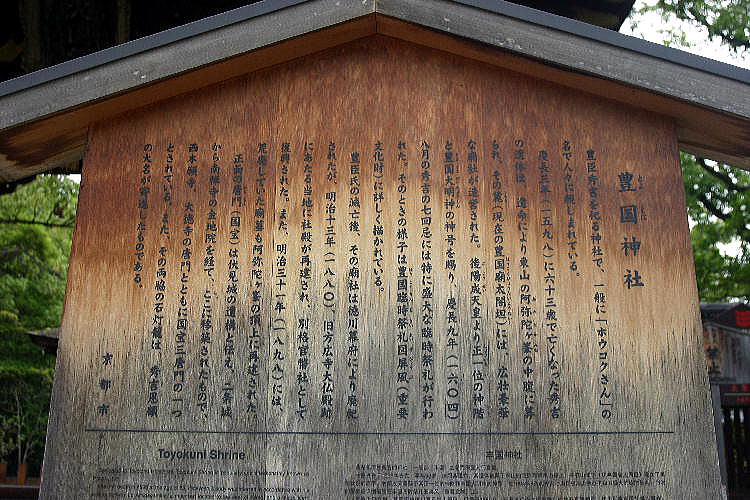 豊国神社
豊臣秀吉を祀る神社で、一般に「ホウコクさん」の
名で人々に親しまれている。
慶長三年(一五九八)に六十三歳で亡くなった秀吉
の遺体は、遺命により東山の阿弥陀ヶ峯の中腹に葬
られ、その麓(現在の豊国廟太閤坦)には、広壮豪華
な廟社が造営された。後陽成天皇より正一位の神階
と豊国大明神の神号を賜り、慶長九年(一六〇四)
八月の秀吉の七回忌には特に盛大な臨時祭礼が行わ
れた。そのときの様子は豊国臨時祭礼図屏風(重要
文化財)に詳しく描かれている。
豊臣氏の滅亡後、その廟社は徳川幕府により廃祀
されたが、明治十三年(一八八〇)、旧方広寺大仏殿跡
にあたる当地に社殿が再建され、別格官幣社として
復興された。また、明治三十一年(一八九八)には、
荒廃していた廟墓も阿弥陀ヶ峯の頂上に再建された。
正面の唐門(国宝)は伏見城の遺構と伝え、二条城
から南禅寺の金地院を経て、ここに移築されたもので、
西本願寺、大徳寺の唐門とともに国宝三唐門の一つ
とされている。また、その両脇の石灯籠は、秀吉恩顧
の大名が寄進したものである。
京都市
Toyokuni Shrine
丰国神社